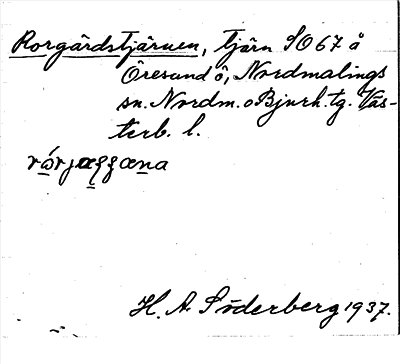 Rorgårdstjärnen, tjärn SO67 å
Öresund ö, Nordmalings
sn. Nordm. o Bjurh. tg. Väs-
terb. l.
H. A. Söderberg 1937.